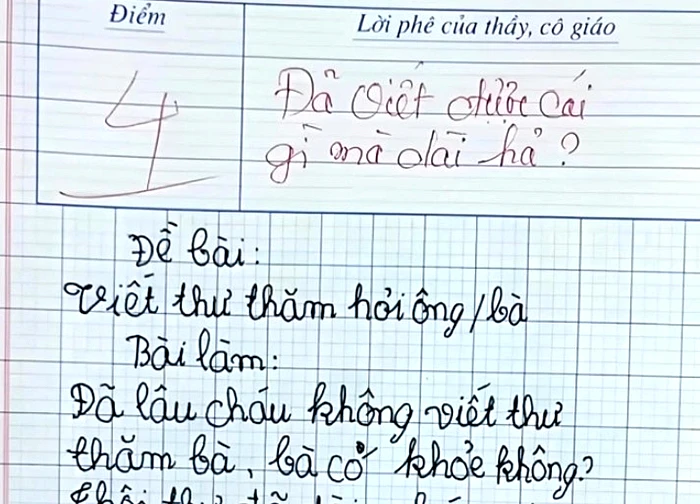 Điểm
Lời phê của thầy, cô giáo
4
Đã viết được cái
gì mà dài hả?
Đề bài:
Viết thư thăm hỏi ông/bà
Bài làm:
Đã lâu cháu không viết thư
thăm bà, bà có khỏe không?